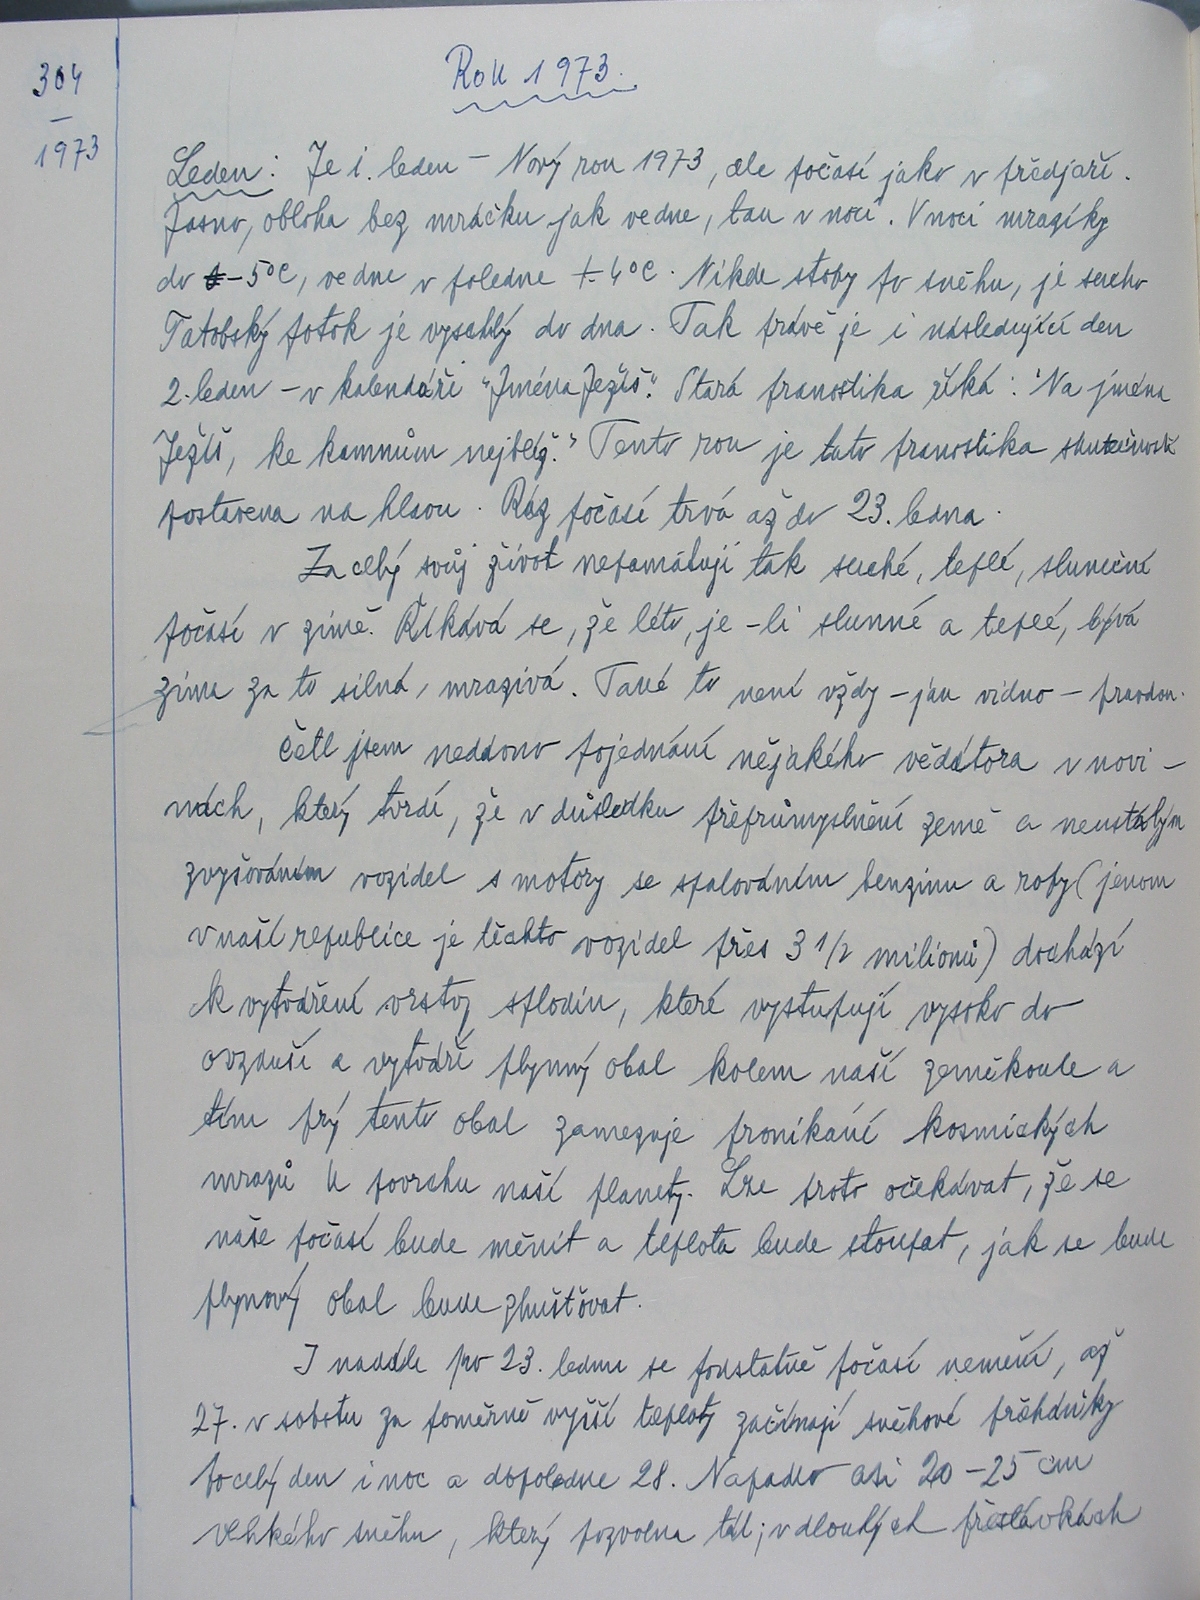 304
1973
Rok 1973.
Leden: Je 1. leden – Nový rok 1973, ale počasí jako v předjaří.
Jasno, obloha bez mráčku jak vedne, tak v noci. V noci mrazíky
do -5°C, vedne v poledne +4°C. Nikde stopy po sněhu, je sucho
potok je vyschlý do dna. Tak právě je i následující den
2. leden – v kalendáři "Jména Ježíš". Stará pranostika říká: "Na jména
Ježíš, ke kamnům nejblíž." Tento rok je tato pranostika skutečnosti
postavena na hlavu. Ráz počasí trvá až do 23. ledna.
Za celý svůj život nepamatuji tak suché, teplé, sluneční
počasí v zimě. Říkává se, že léto, je-li slunné a teplé, bývá
zima za to silná, mrazivá. Také to není vždy – jak vidno – pravdou.
Četl jsem nedávno pojednání nějakého vědátora v novi–
nách, který tvrdí, že v důsledku přeprůmyslnění země a neustálým
zvyšováním vozidel s motory se spalováním benzinu a ropy (jenom
v naší republice je těchto vozidel přes 3 1/2 milionů) dochází
k vytváření vrstvy splodin, které vystupují vysoko do
ovzduší a vytváří plynný obal kolem naší zeměkoule a
tím prý tento obal zamezuje pronikání kosmických
mrazů k povrchu naší planety. Lze proto očekávat, že se
naše počasí bude měnit a teplota bude stoupat, jak se bude
plynový obal bude zhušťovat.
I nadále po 23. lednu se podstatně počasí nemění, až
27. v sobotu za poměrně vyšší teploty začínají sněhové přeháňky
po celý den i noc a dopoledne 28. Napadlo asi 20–25 cm
vlhkého sněhu, který pozvolna tál; v dlouhých přestávkách